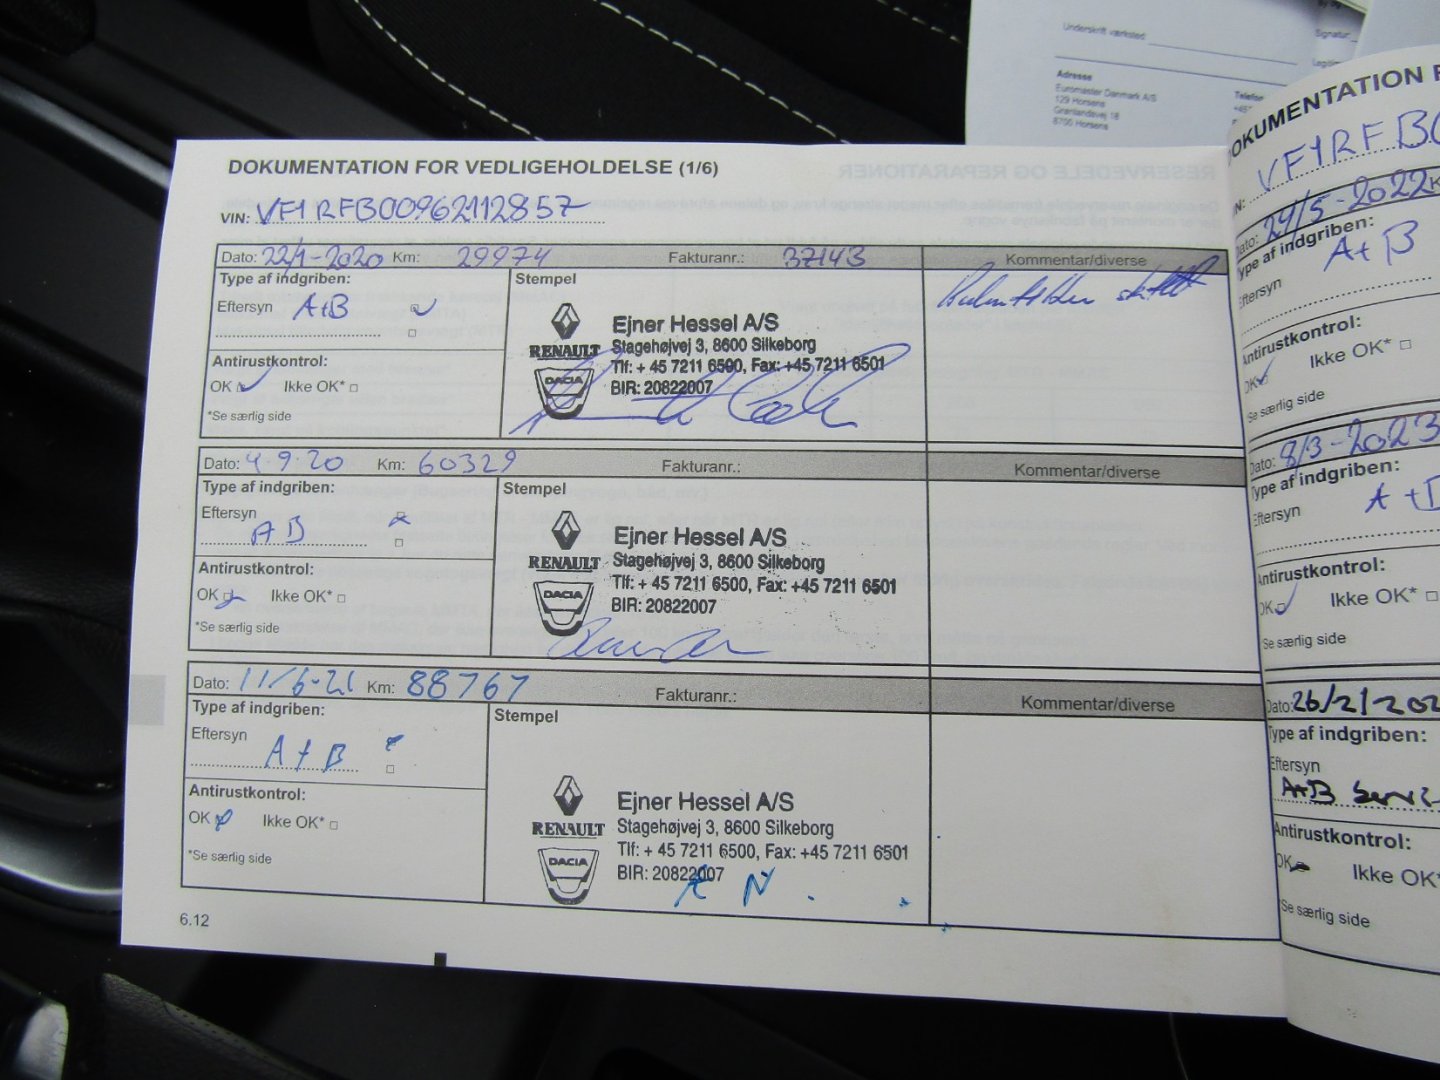 Underskrift værksted
Signatur:
Adresse
Euromaster Danmark A/S
129 Horsens
Grønlandsvej 18
8700 Horsens
Telefon
DOKUMENTATION FOR VEDLIGEHOLDELSE (1/6)
VIN: VF1RFB00962112857
Dato: 22/1-2020 Km: 29974 Fakturanr.: 37143 Kommentar/diverse
Type af indgriben: Stempel
Eftersyn A+B
Antirustkontrol:
OK Ikke OK*
*Se særlig side
RENAULT
DACIA
Ejner Hessel A/S
Stagehøjvej 3, 8600 Silkeborg
Tlf: + 45 7211 6500, Fax: +45 7211 6501
BIR: 20822007
Dato: 4.9.20 Km: 60329 Fakturanr.: Kommentar/diverse
Type af indgriben: Stempel
Eftersyn
AB
Antirustkontrol:
OK Ikke OK*
*Se særlig side
RENAULT
DACIA
Ejner Hessel A/S
Stagehøjvej 3, 8600 Silkeborg
Tlf: + 45 7211 6500, Fax: +45 7211 6501
BIR: 20822007
Dato: 11/6-21 Km: 88767 Fakturanr.: Kommentar/diverse
Type af indgriben: Stempel
Eftersyn
A+B
Antirustkontrol:
OK Ikke OK*
*Se særlig side
RENAULT
DACIA
Ejner Hessel A/S
Stagehøjvej 3, 8600 Silkeborg
Tlf: + 45 7211 6500, Fax: +45 7211 6501
BIR: 20822007
6.12
DOKUMENTATION F
VF1RFB0
Dato: 24/5-2022
Type af indgriben:
A+B
Eftersyn
Antirustkontrol:
OK Ikke OK*
*Se særlig side
Dato: 8/3-2023
Type af indgriben:
Eftersyn A+B
Antirustkontrol:
OK Ikke OK*
*Se særlig side
Dato: 26/2/202
Type af indgriben:
Eftersyn
A+B
Antirustkontrol:
OK Ikke OK*
*Se særlig side